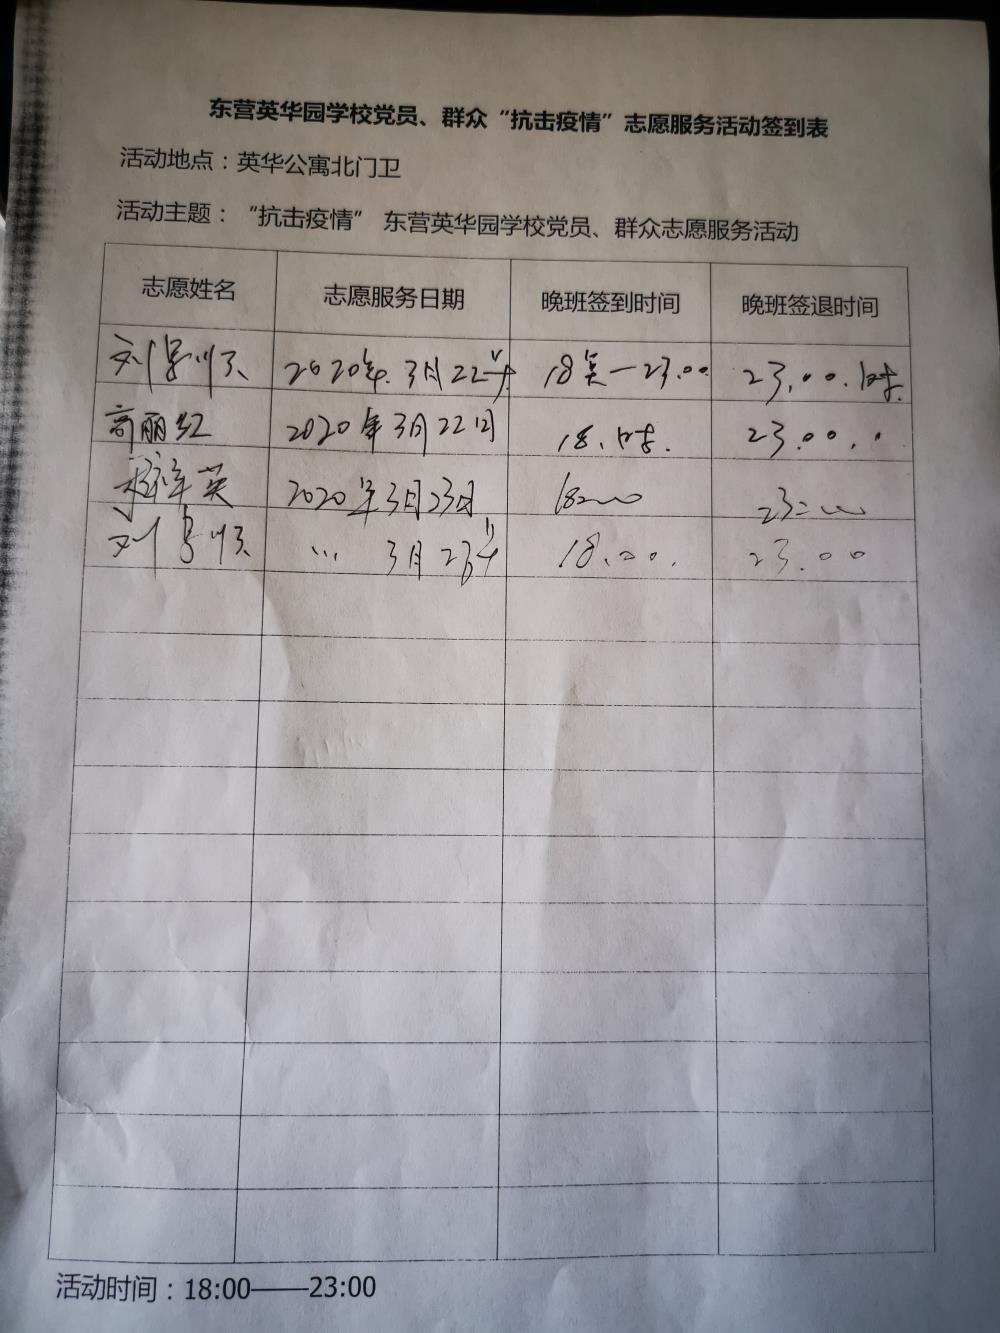 东营英华园学校党员、群众“抗击疫情”志愿服务活动签到表
活动地点：英华公寓北门卫
活动主题：“抗击疫情” 东营英华园学校党员、群众志愿服务活动
志愿姓名 志愿服务日期 晚班签到时间 晚班签退时间
刘 2020年.3月22 18 —23.00 23.00.时.
高丽红 2020年3月22日 18.时. 23.00
英 2020年3月23日 18 23
刘 3月23 18.00. 23.00
活动时间：18:00——23:00